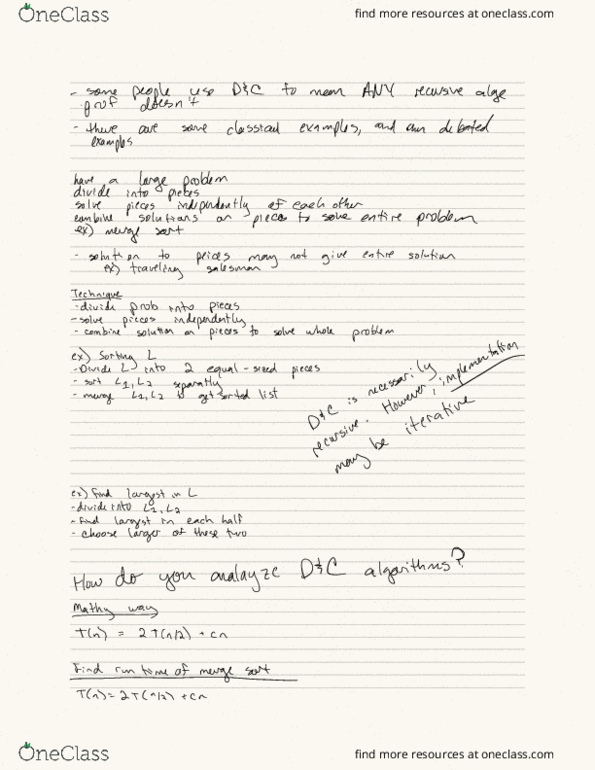 OneClass
find more resources at oneclass.com
- some people use D&C to mean ANY recursive algo
prof doesn't
- there are some classical examples, and own debated
examples
have a large problem
divide into pieces
solve pieces independently of each other
combine solutions on pieces to solve entire problem
ex) merge sort
- solution to peices may not give entire solution
ex) traveling salesman
Technique
- divide prob into pieces
- solve pieces independently
- combine solution on pieces to solve whole problem
ex) Sorting L
- Divide L into 2 equal-sized pieces
- sort L1, L2 separately
- merge L1, L2 to get sorted list
D&C is necessarily
recursive. However, implementation
may be iterative
ex) find largest in L
- divide into L1, L2
- find largest in each half
- choose larger of these two
How do you analayze D&C algorithms?
Mathy way
T(n) = 2T(n/2) + cn
Find run time of merge sort
T(n) = 2T(n/2) + cn
OneClass
find more resources at oneclass.com